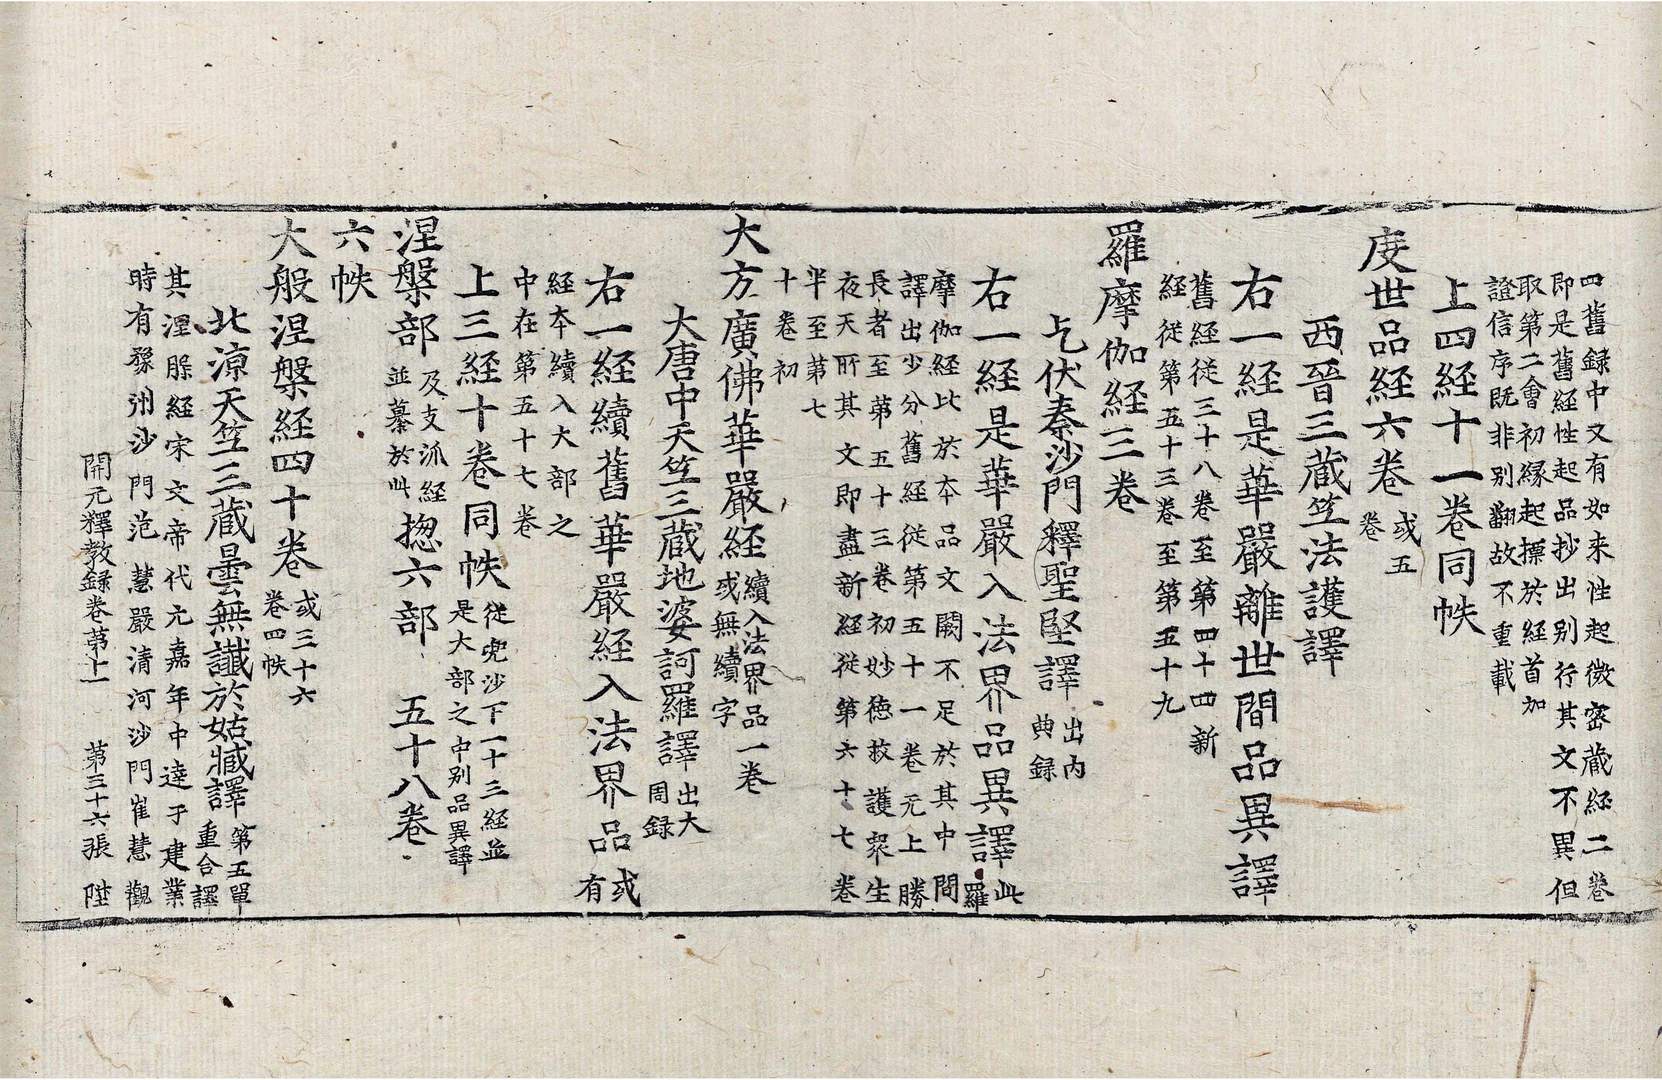 四舊録中又有如来性起微密蔵経二卷
即是舊経性起品抄出别行其文不異但
取第二會初縁起摽於経首加
證信序既非别翻故不重載
上四経十一卷同帙
度世品経六卷 或五卷
西晉三蔵竺法護譯
右一経是華嚴離世間品異譯
舊経従三十八卷至第四十四新
経従第五十三卷至第五十九
羅摩伽経三卷
乞伏秦沙門釋聖堅譯 出内典録
右一経是華嚴入法界品異譯 此羅
摩伽経比於夲品文闕不足於其中間
譯出少分舊経従第五十一卷元上勝
長者至第五十三卷初妙徳救護衆生
夜天所其文即盡新経従第六十七卷
半至第七
十卷初
大方廣佛華嚴経 續入法界品一卷或無續字
大唐中天竺三蔵地婆訶羅譯 出大周録
右一経續舊華嚴経入法界品 或有
経夲續入大部之
中在第五十七卷
上三経十卷同帙 従兜沙下一十三経並是大部之中别品異譯
涅槃部 及支派経並纂於此 惣六部 五十八卷
六帙
大般涅槃経四十卷 或三十六卷四帙
北涼天竺三蔵曇無讖於姑臧譯 第五單重合譯
其涅槃経宋文帝代元嘉年中逹于建業
時有豫州沙門范慧嚴清河沙門崔慧觀
開元釋教録卷第十一 第三十六張 陞